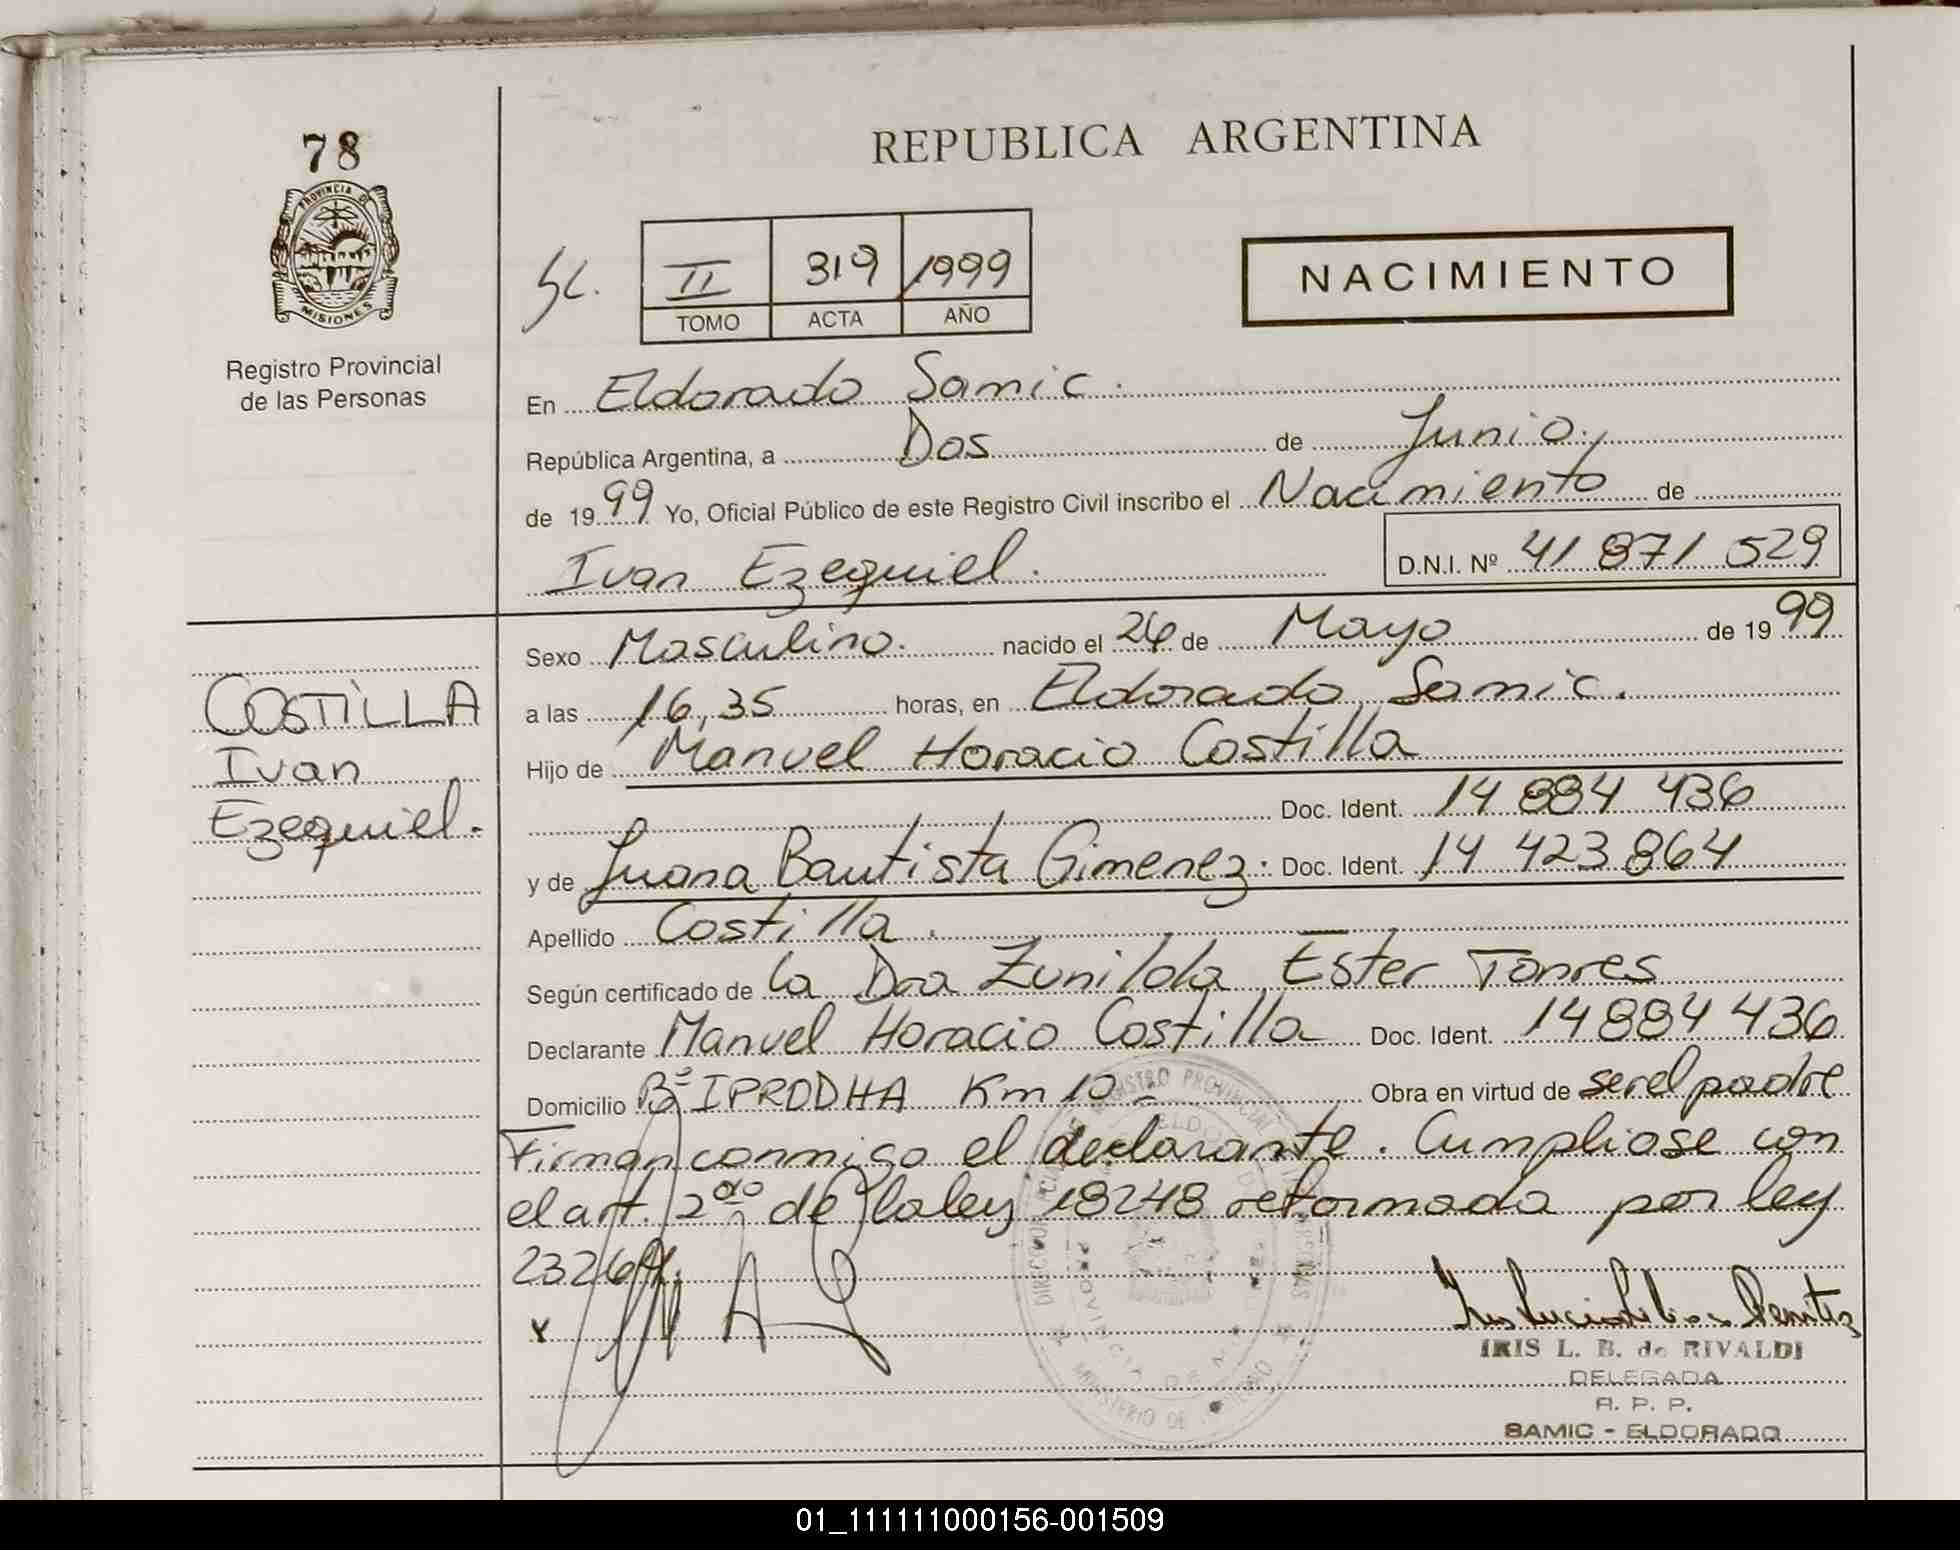 78
PROVINCIA DE
MISIONES
Registro Provincial
de las Personas
REPUBLICA ARGENTINA
II 319 1999
TOMO ACTA AÑO
NACIMIENTO
En Eldorado Samic.
República Argentina, a Dos de Junio,
de 1999 Yo, Oficial Público de este Registro Civil inscribo el Nacimiento de
Ivan Ezequiel. D.N.I. Nº 41 871 529
Sexo Masculino. nacido el 26 de Mayo de 1999
COSTILLA
Ivan
Ezequiel.
a las 16,35 horas, en Eldorado Samic.
Hijo de Manuel Horacio Costilla
Doc. Ident. 14 884 436
y de Juana Bautista Gimenez. Doc. Ident. 14 423 864
Apellido Costilla.
Según certificado de la Dra Zunilda Ester Torres
Declarante Manuel Horacio Costilla Doc. Ident. 14 884 436
Domicilio Bº IPRODHA Km 10 - Obra en virtud de ser el padre
Firman conmigo el declarante. Cumpliose con
el art. 2do de la ley 18248 reformada por ley
23264.
IRIS L. B. de RIVALDI
DELEGADA
R. P. P.
SAMIC - ELDORADO
01_111111000156-001509